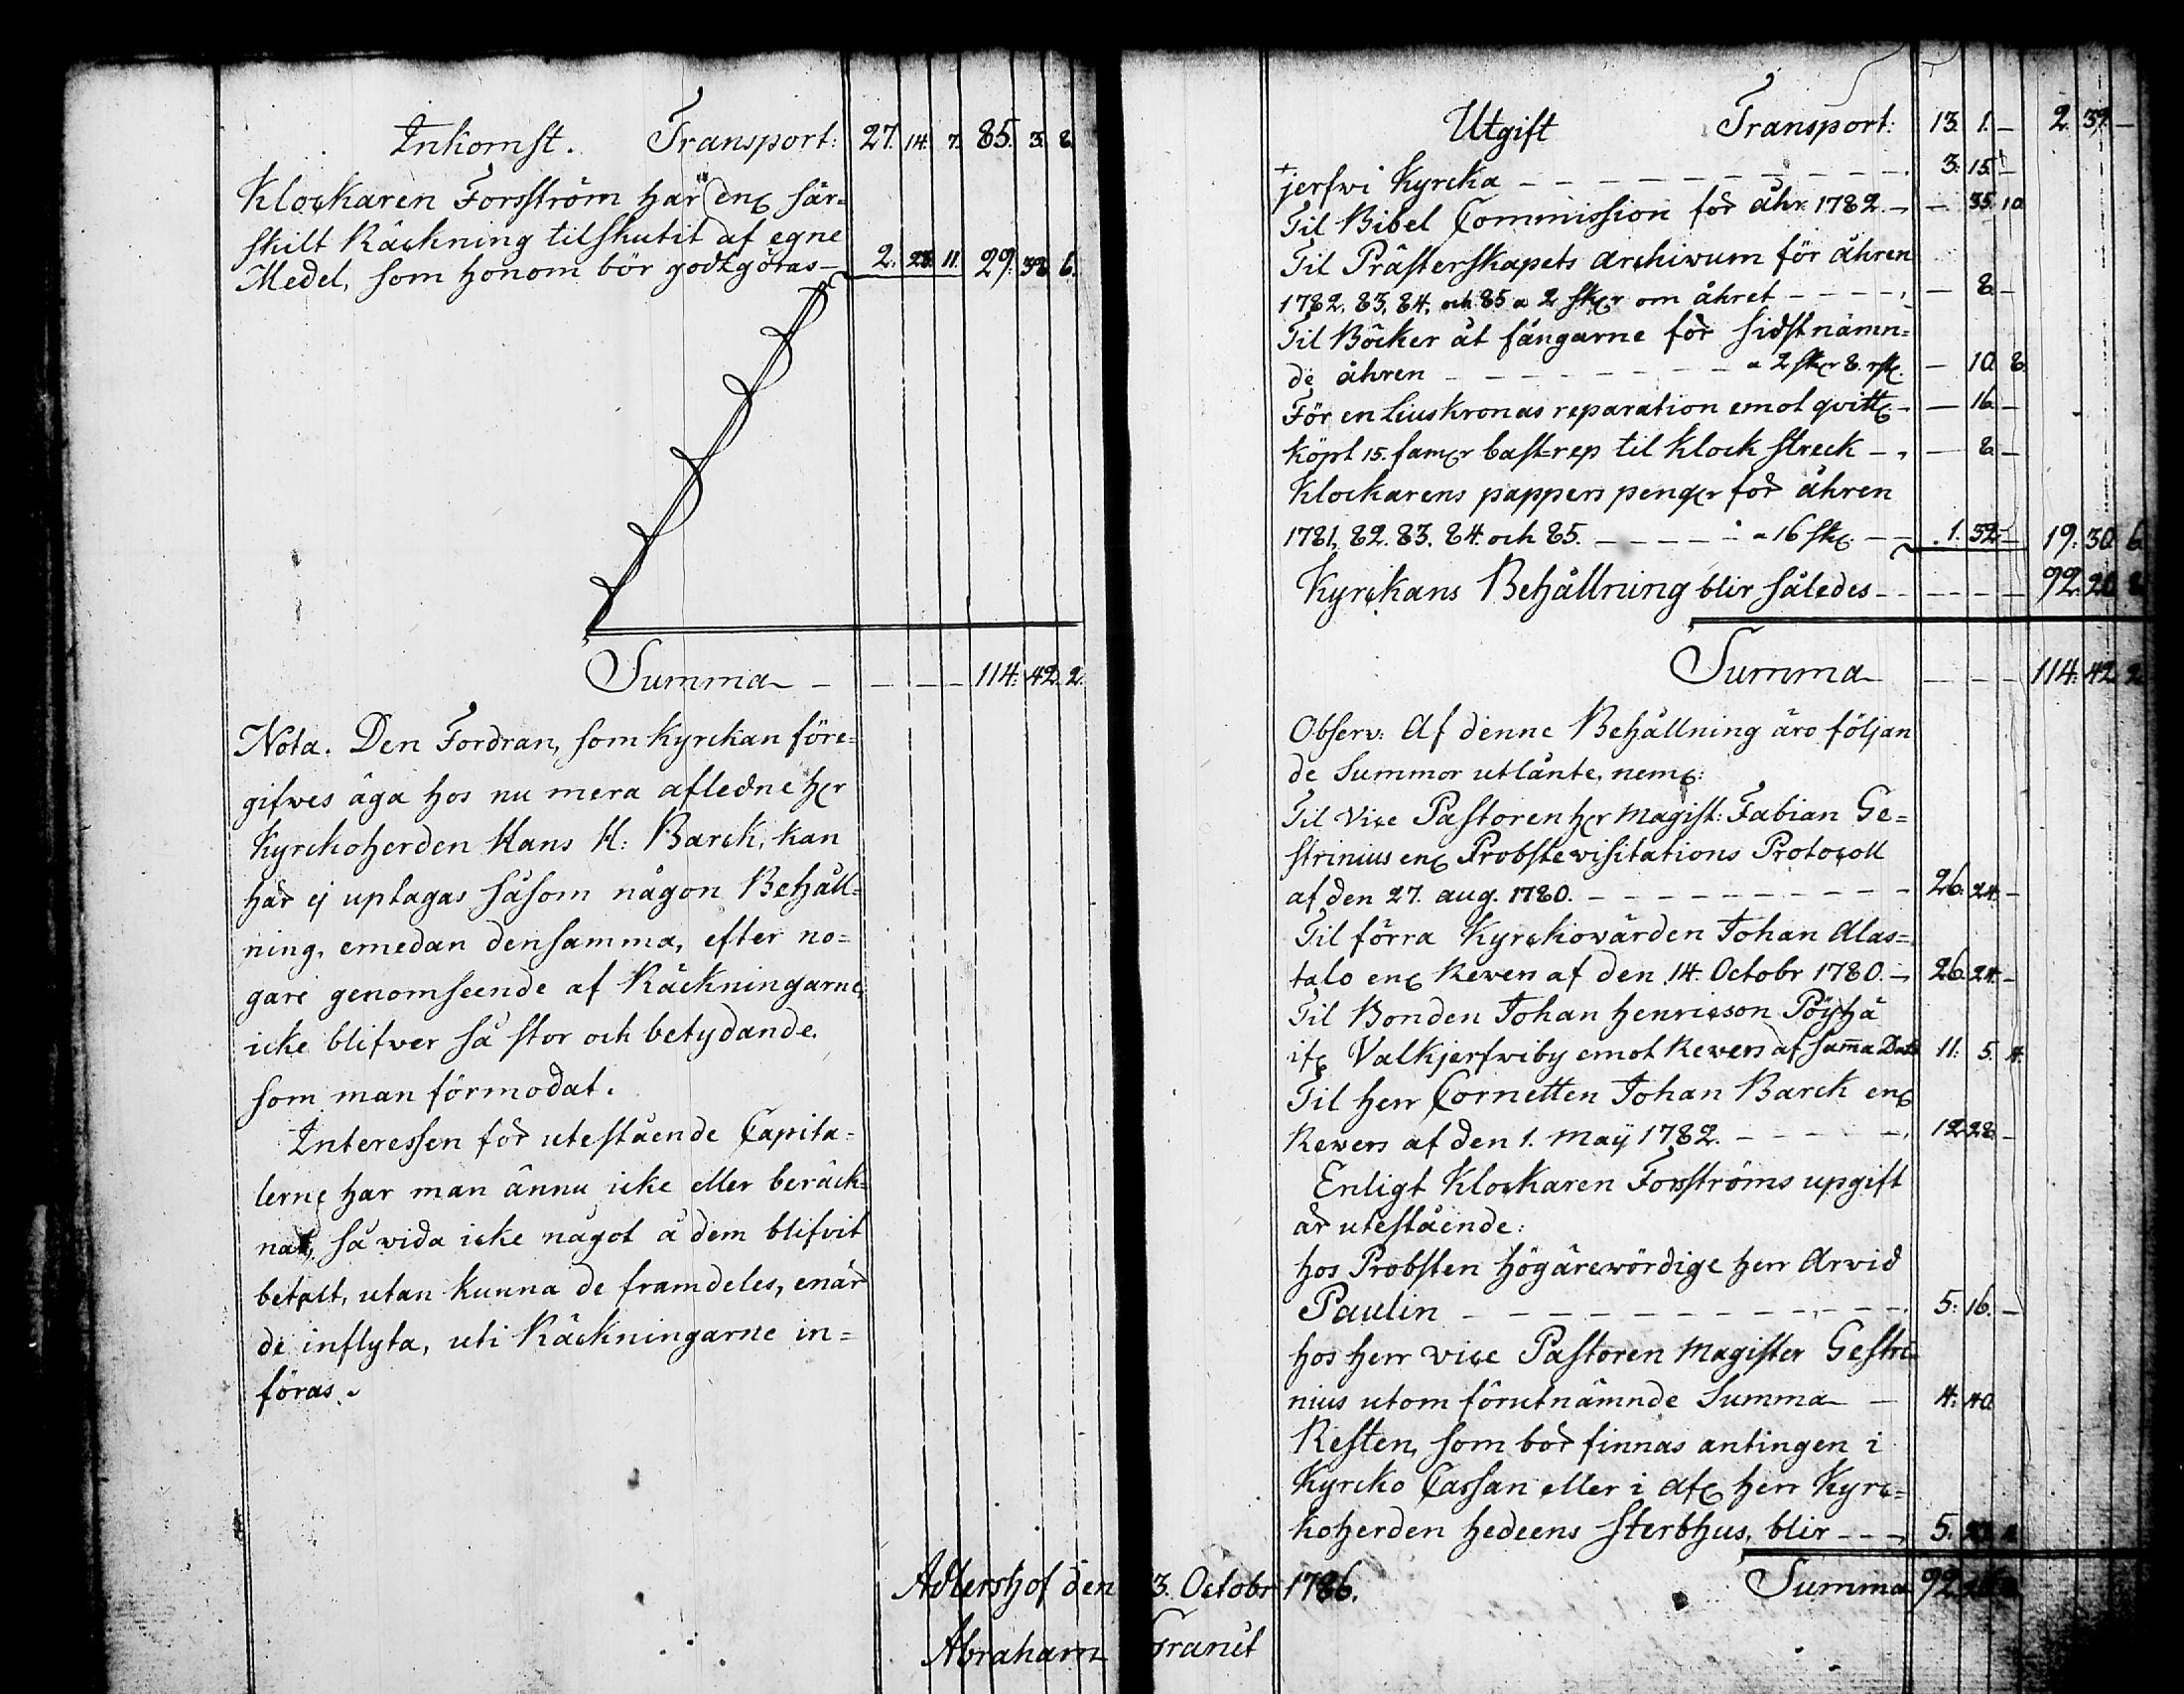 Inkomst. Transport: 27. 14. 7. 85. 3. 8.
Klockaren Forsström har enl sär=
skilt Räckning tilskutit af egne
Medel, som honom bör godtgöras— 2. 23. 11. 29. 38. 6.
Summa — — — — 114. 42. 2.
Nota. Den Fordran, som Kyrckan före=
gifves äga hos nu mera afledne hr
Kyrckoherden Hans H: Barck, kan
här ej uptagas såsom någon Behåll=
ning, emedan densamma, efter no=
gare genomseende af Räckningarne,
icke blifver så stor och betydande,
som man förmodat.
Interessen för utestående Capita=
lerne har man ännu icke eller beräck=
nat, så vida icke något å dem blifvit
betalt, utan kunna de framdeles, enär
de inflyta, uti Räckningarne in=
föras.
Utgift Transport: 13. 1. — 2. 37. —
jerfwi Kyrcka — — — 3. 15. —
Til Bibel Commission för åhr 1782. — — 35. 10
Til Prästerskapets Archivum för åhren
1782, 83, 84, och 85 a 2 sk om åhret — — — 8. —
Til Böcker åt fångarne för sidstnämn=
de åhren — — — a 2 sk 8. rst. — 10. 8.
För en Liuskronas reparation emot qvitt. — — 16. —
Köpt 15. famr bast=rep til klock streck — — 8. —
Klockarens pappers pengr för åhren
1781, 82. 83. 84. och 85. — — — a 16 sk — — 1. 32. — 19. 30. 6.
Kyrckans Behållning blir således — — — — 92. 20. 8.
Summa — — — 114. 42. 2.
Observ: Af denne Behållning äro följan
de Summor utlånte, neml:
Til Vice Pastoren hr Magist: Fabian Ge=
strinius enl Probstevisitations Protocoll
af den 27. aug. 1780. — — — 26. 24. —
Til förra Kyrckovärden Johan Alas=
talo enl Revers af den 14. Octobr 1780. — 26. 24. —
Til Bonden Johan Henricson Pöyhä
ifr Valkjerfwiby emot Revers af samma Dato 11. 5. 4.
Til Herr Cornetten Johan Barck enl
Revers af den 1. Maÿ 1782. — — — 12. 28. —
Enligt Klockaren Forsströms upgift
är utestående:
hos Probsten Högärevördige Herr Arvid
Paulin — — — 5. 16. —
hos Herr Vice Pastoren Magister Gestri=
nius utom förutnämnde Summa — 4. 40.
Resten, som bör finnas antingen i
Kyrcko Cassan eller i Afl Herr Kyrc=
koherden Hedeens Sterbhus, blir — — — 5.
Summa 92.
Adlershof den 3. Octobr 1786.
Abraham Granit